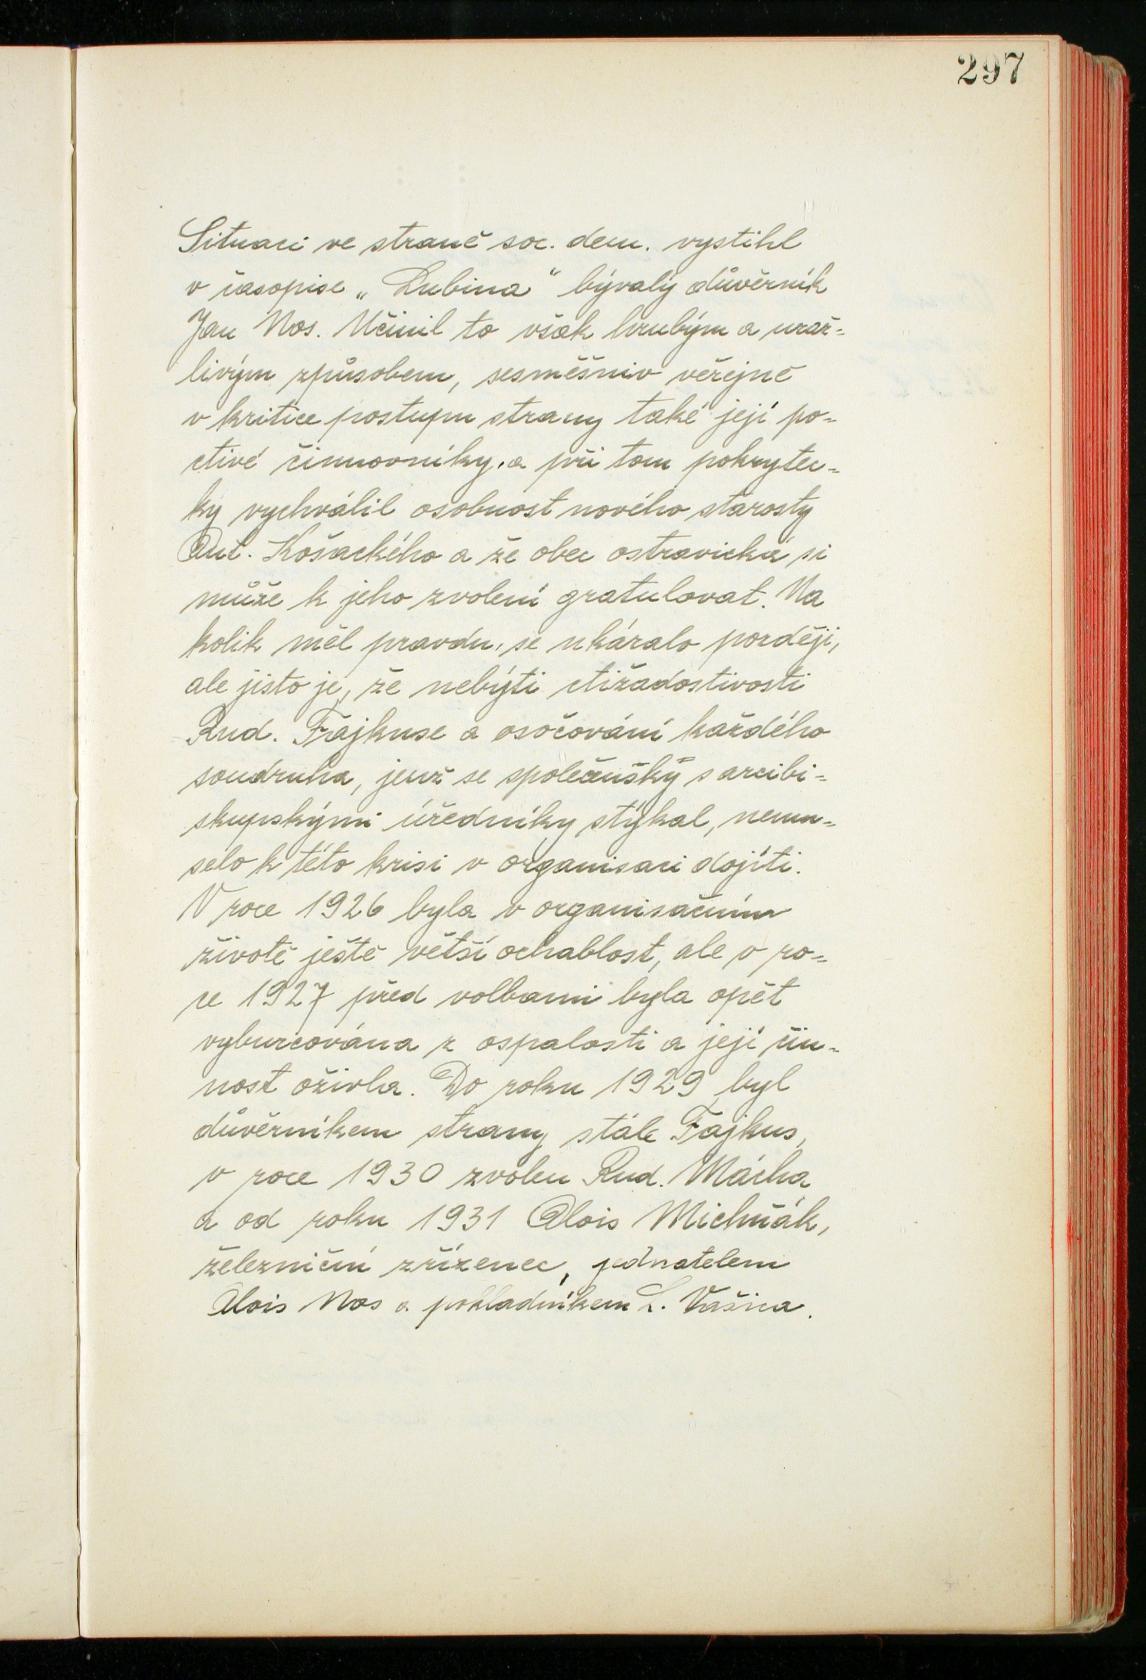 297
Situaci ve straně soc. dem. vystihl
v časopise „Lubina“ bývalý důvěrník
Jan Nos. Učinil to však hrubým a uraž-
livým způsobem, sesměšniv veřejně
v kritice postupu strany také její po-
ctivé činnovníky, a při tom pokrytec-
ky vychválil osobnost nového starosty
Ant. Košackého a že obec ostravická si
může k jeho zvolení gratulovat. Na
kolik měl pravdu, se ukázalo později,
ale jisto je, že nebýti ctižadostivosti
Rud. Fajkuse a osočování každého
soudruha, jenž se společensky s arcibi-
skupskými úředníky stýkal, nemu-
selo k této krisi v organisaci dojíti.
V roce 1926 byla v organisačním
životě ještě větší ochablost, ale v ro-
ce 1927 před volbami byla opět
vyburcována z ospalosti a její čin-
nost oživla. Do roku 1929 byl
důvěrníkem strany stále Fajkus,
v roce 1930 zvolen Rud. Mácha
a od roku 1931 Alois Michňák,
železniční zřízenec, jednatelem
Alois Nos a pokladníkem L. Vašica.